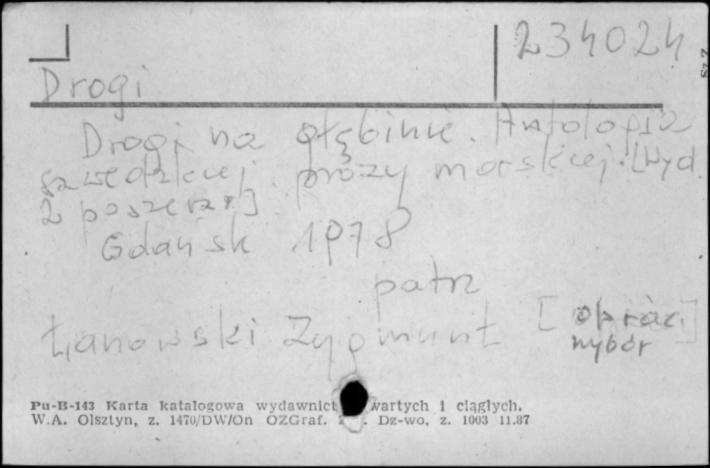 234024
Drogi
Drogi na głębinie. Antologia
szwedzkiej prozy morskiej. [Wyd.
2 poszerz.]
Gdańsk 1978
patrz
Łanowski Zygmunt [oprac.]
wybór
Pu-B-143 Karta katalogowa wydawnict wartych i ciągłych.
W.A. Olsztyn, z. 1470/DW/On OZGraf. Dz-wo, z. 1003 11.87